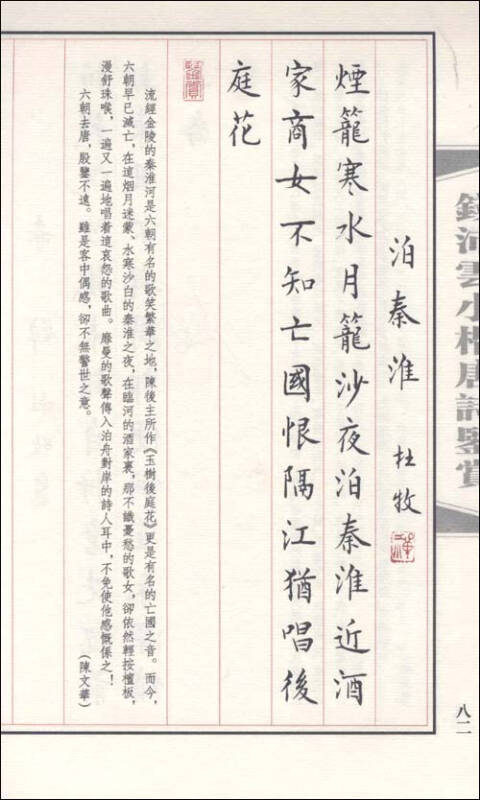 泊秦淮
杜牧
煙籠寒水月籠沙夜泊秦淮近酒
家商女不知亡國恨隔江猶唱後
庭花
鑒賞
流經金陵的秦淮河是六朝有名的歌笑繁華之地,陳後主所作《玉樹後庭花》更是有名的亡國之音。而今,
六朝早已滅亡,在這烟月迷蒙、水寒沙白的秦淮之夜,在臨河的酒家裏,那不識憂愁的歌女,卻依然輕按檀板,
漫舒珠喉,一遍又一遍地唱着這哀怨的歌曲。靡曼的歌聲傳入泊舟對岸的詩人耳中,不免使他感慨係之!
六朝去唐,殷鑒不遠。雖是客中偶感,卻不無警世之意。
(陳文華)
河雲小楷唐詩鑒賞
八二